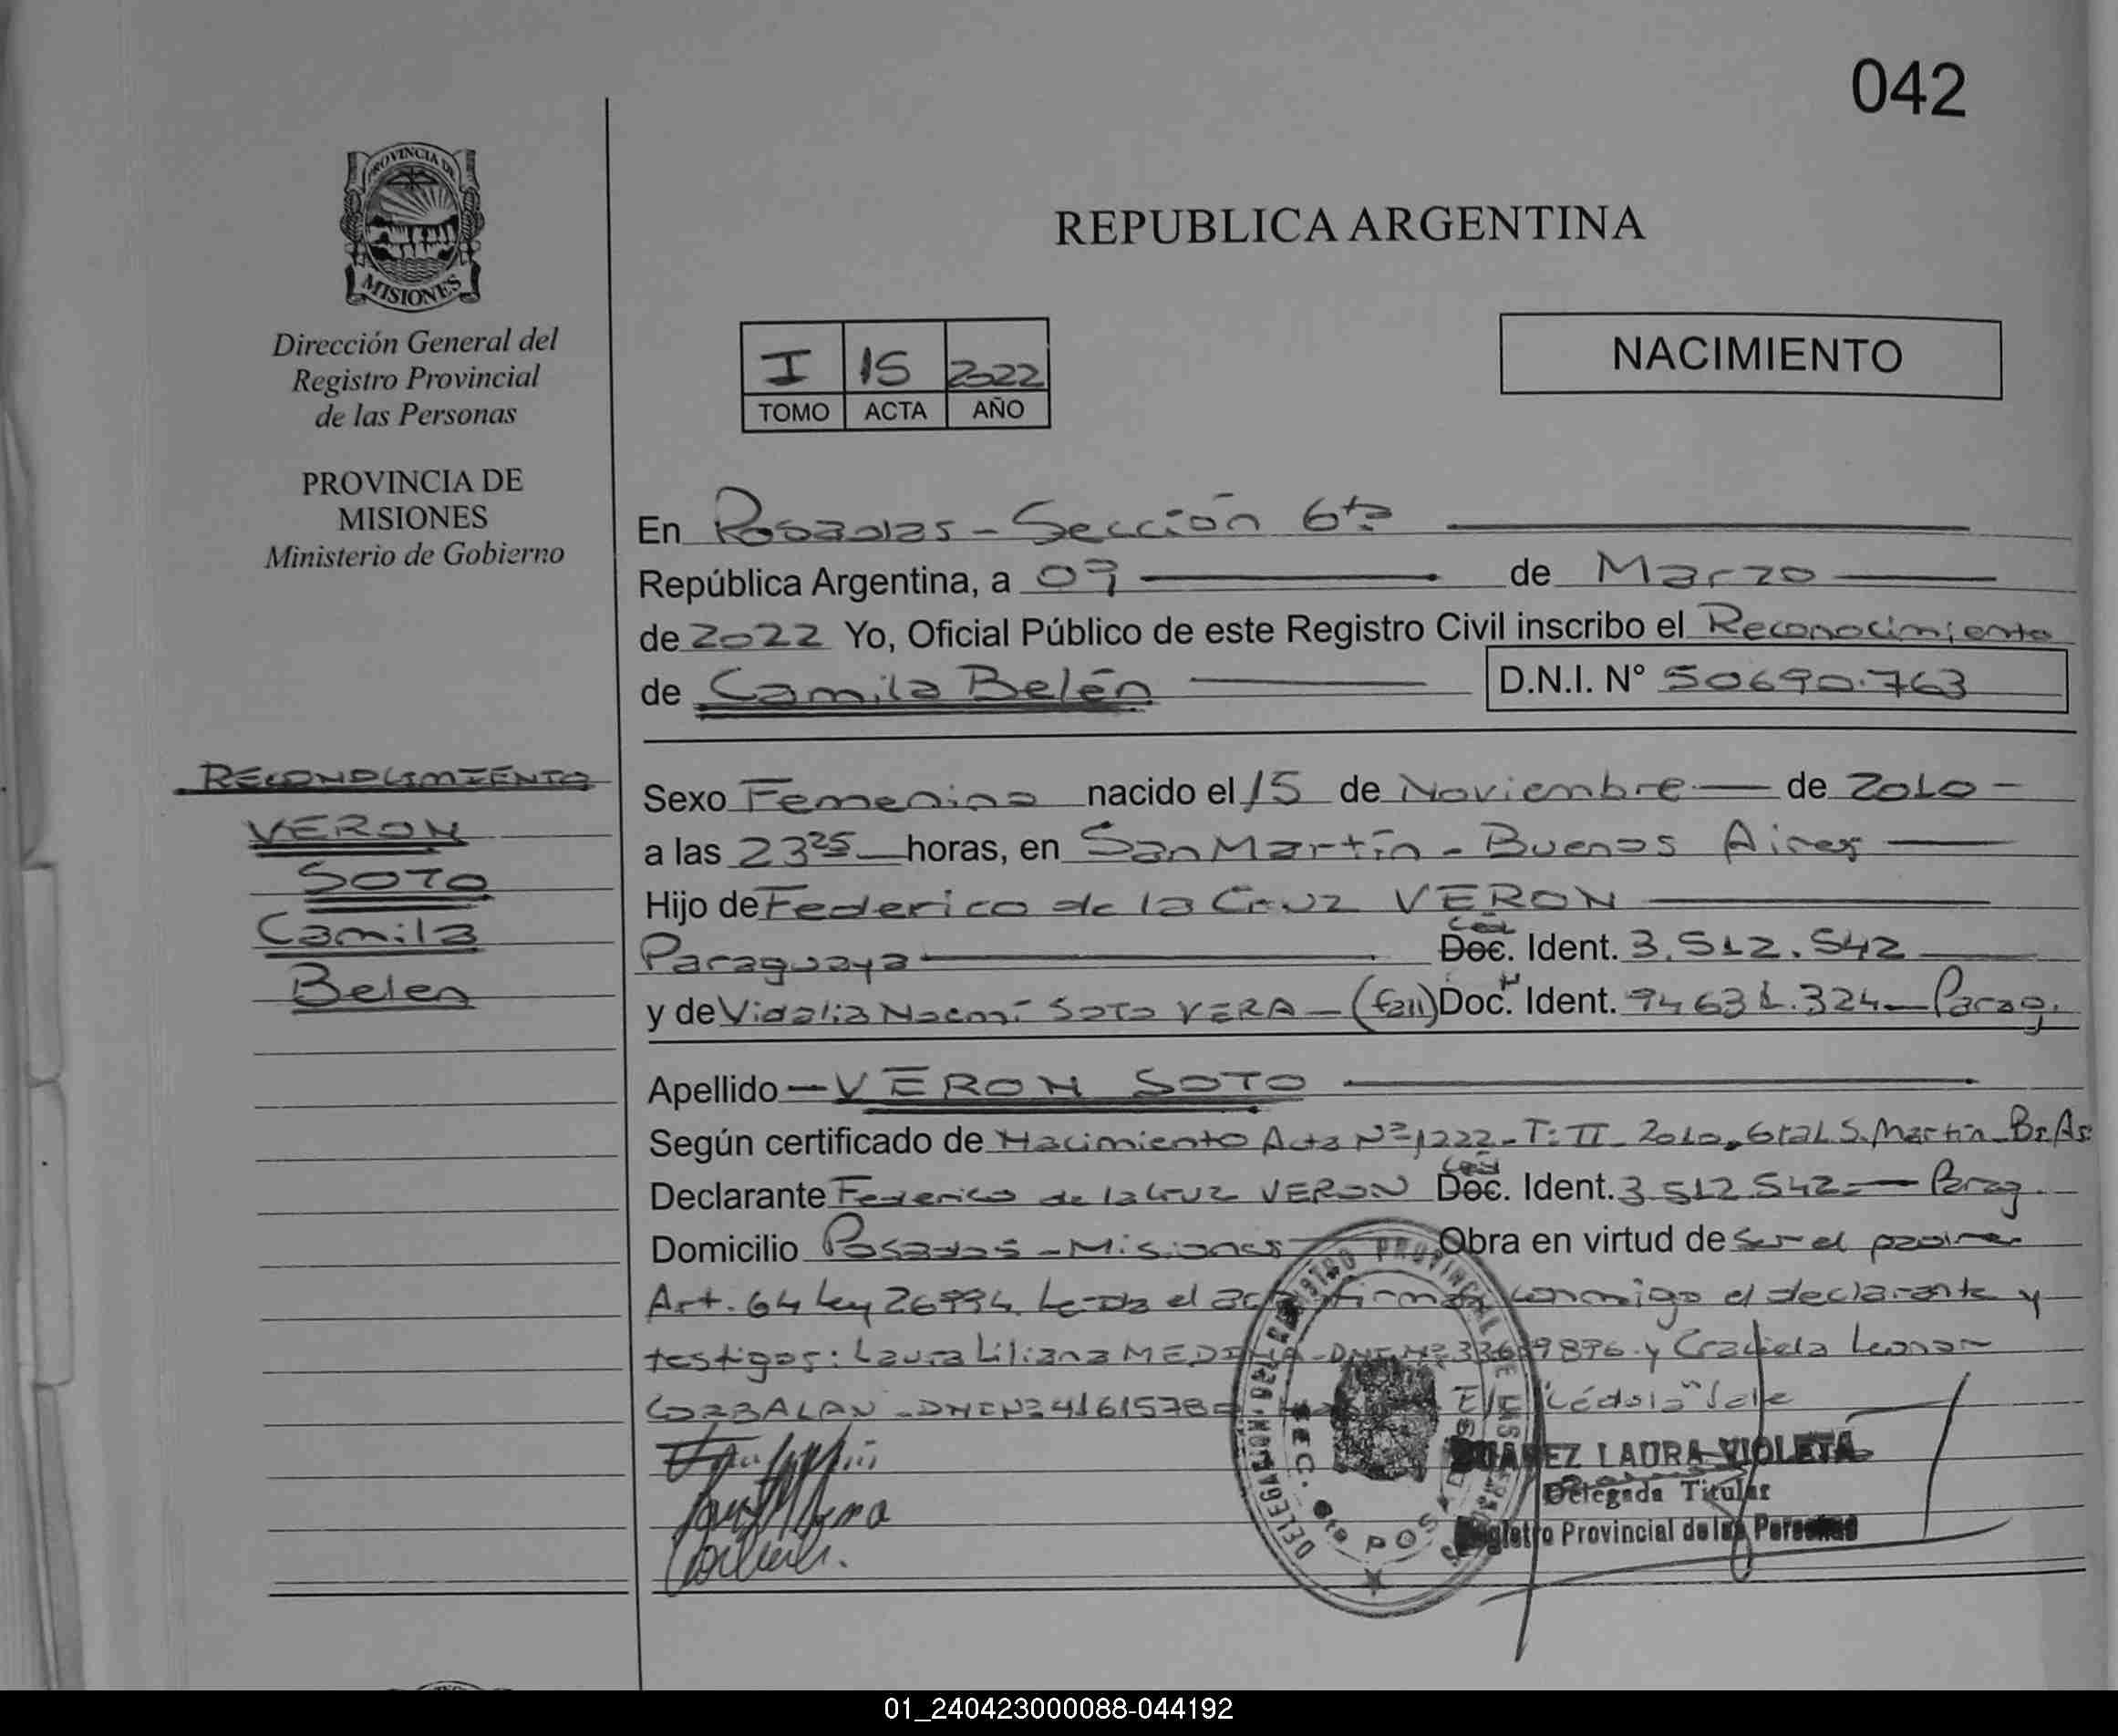 042
PROVINCIA DE
MISIONES
Dirección General del
Registro Provincial
de las Personas
PROVINCIA DE
MISIONES
Ministerio de Gobierno
REPUBLICA ARGENTINA
I 15 2022
TOMO ACTA AÑO
NACIMIENTO
En Posadas - Sección 6ta
República Argentina, a 09 de Marzo
de 2022 Yo, Oficial Público de este Registro Civil inscribo el Reconocimiento
de Camila Belén D.N.I. N° 50690.763
RECONOCIMIENTO
VERON
SOTO
Camila
Belen
Sexo Femenino nacido el 15 de Noviembre de 2010
a las 23 25 horas, en San Martín - Buenos Aires
Hijo de Federico de la Cruz VERON
Paraguaya Ced Doc. Ident. 3.512.542
y de Vidalia Noemí SOTO VERA - (fall) Doc. Ident. 94631.324 - Parag.
Apellido - VERON SOTO
Según certificado de Nacimiento Acta Nº 1222 - T: II - 2010, Gral S. Martín - Bs As
Declarante Federico de la Cruz VERON Ced Doc. Ident. 3.512.542 - Parag.
Domicilio Posadas - Misiones Obra en virtud de ser el padre
Art. 64 Ley 26994. Leída el acta firman conmigo el declarante y
testigos: Laura Liliana MEDINA - DNI Nº 9896 y Graciela Leonor
CORBALAN - DNI Nº 4161578 E/L "Cédula" Vale
SUAREZ LAURA VIOLETA
Delegada Titular
Registro Provincial de las Personas
SEC. 6ta POSADAS
01_240423000088-044192